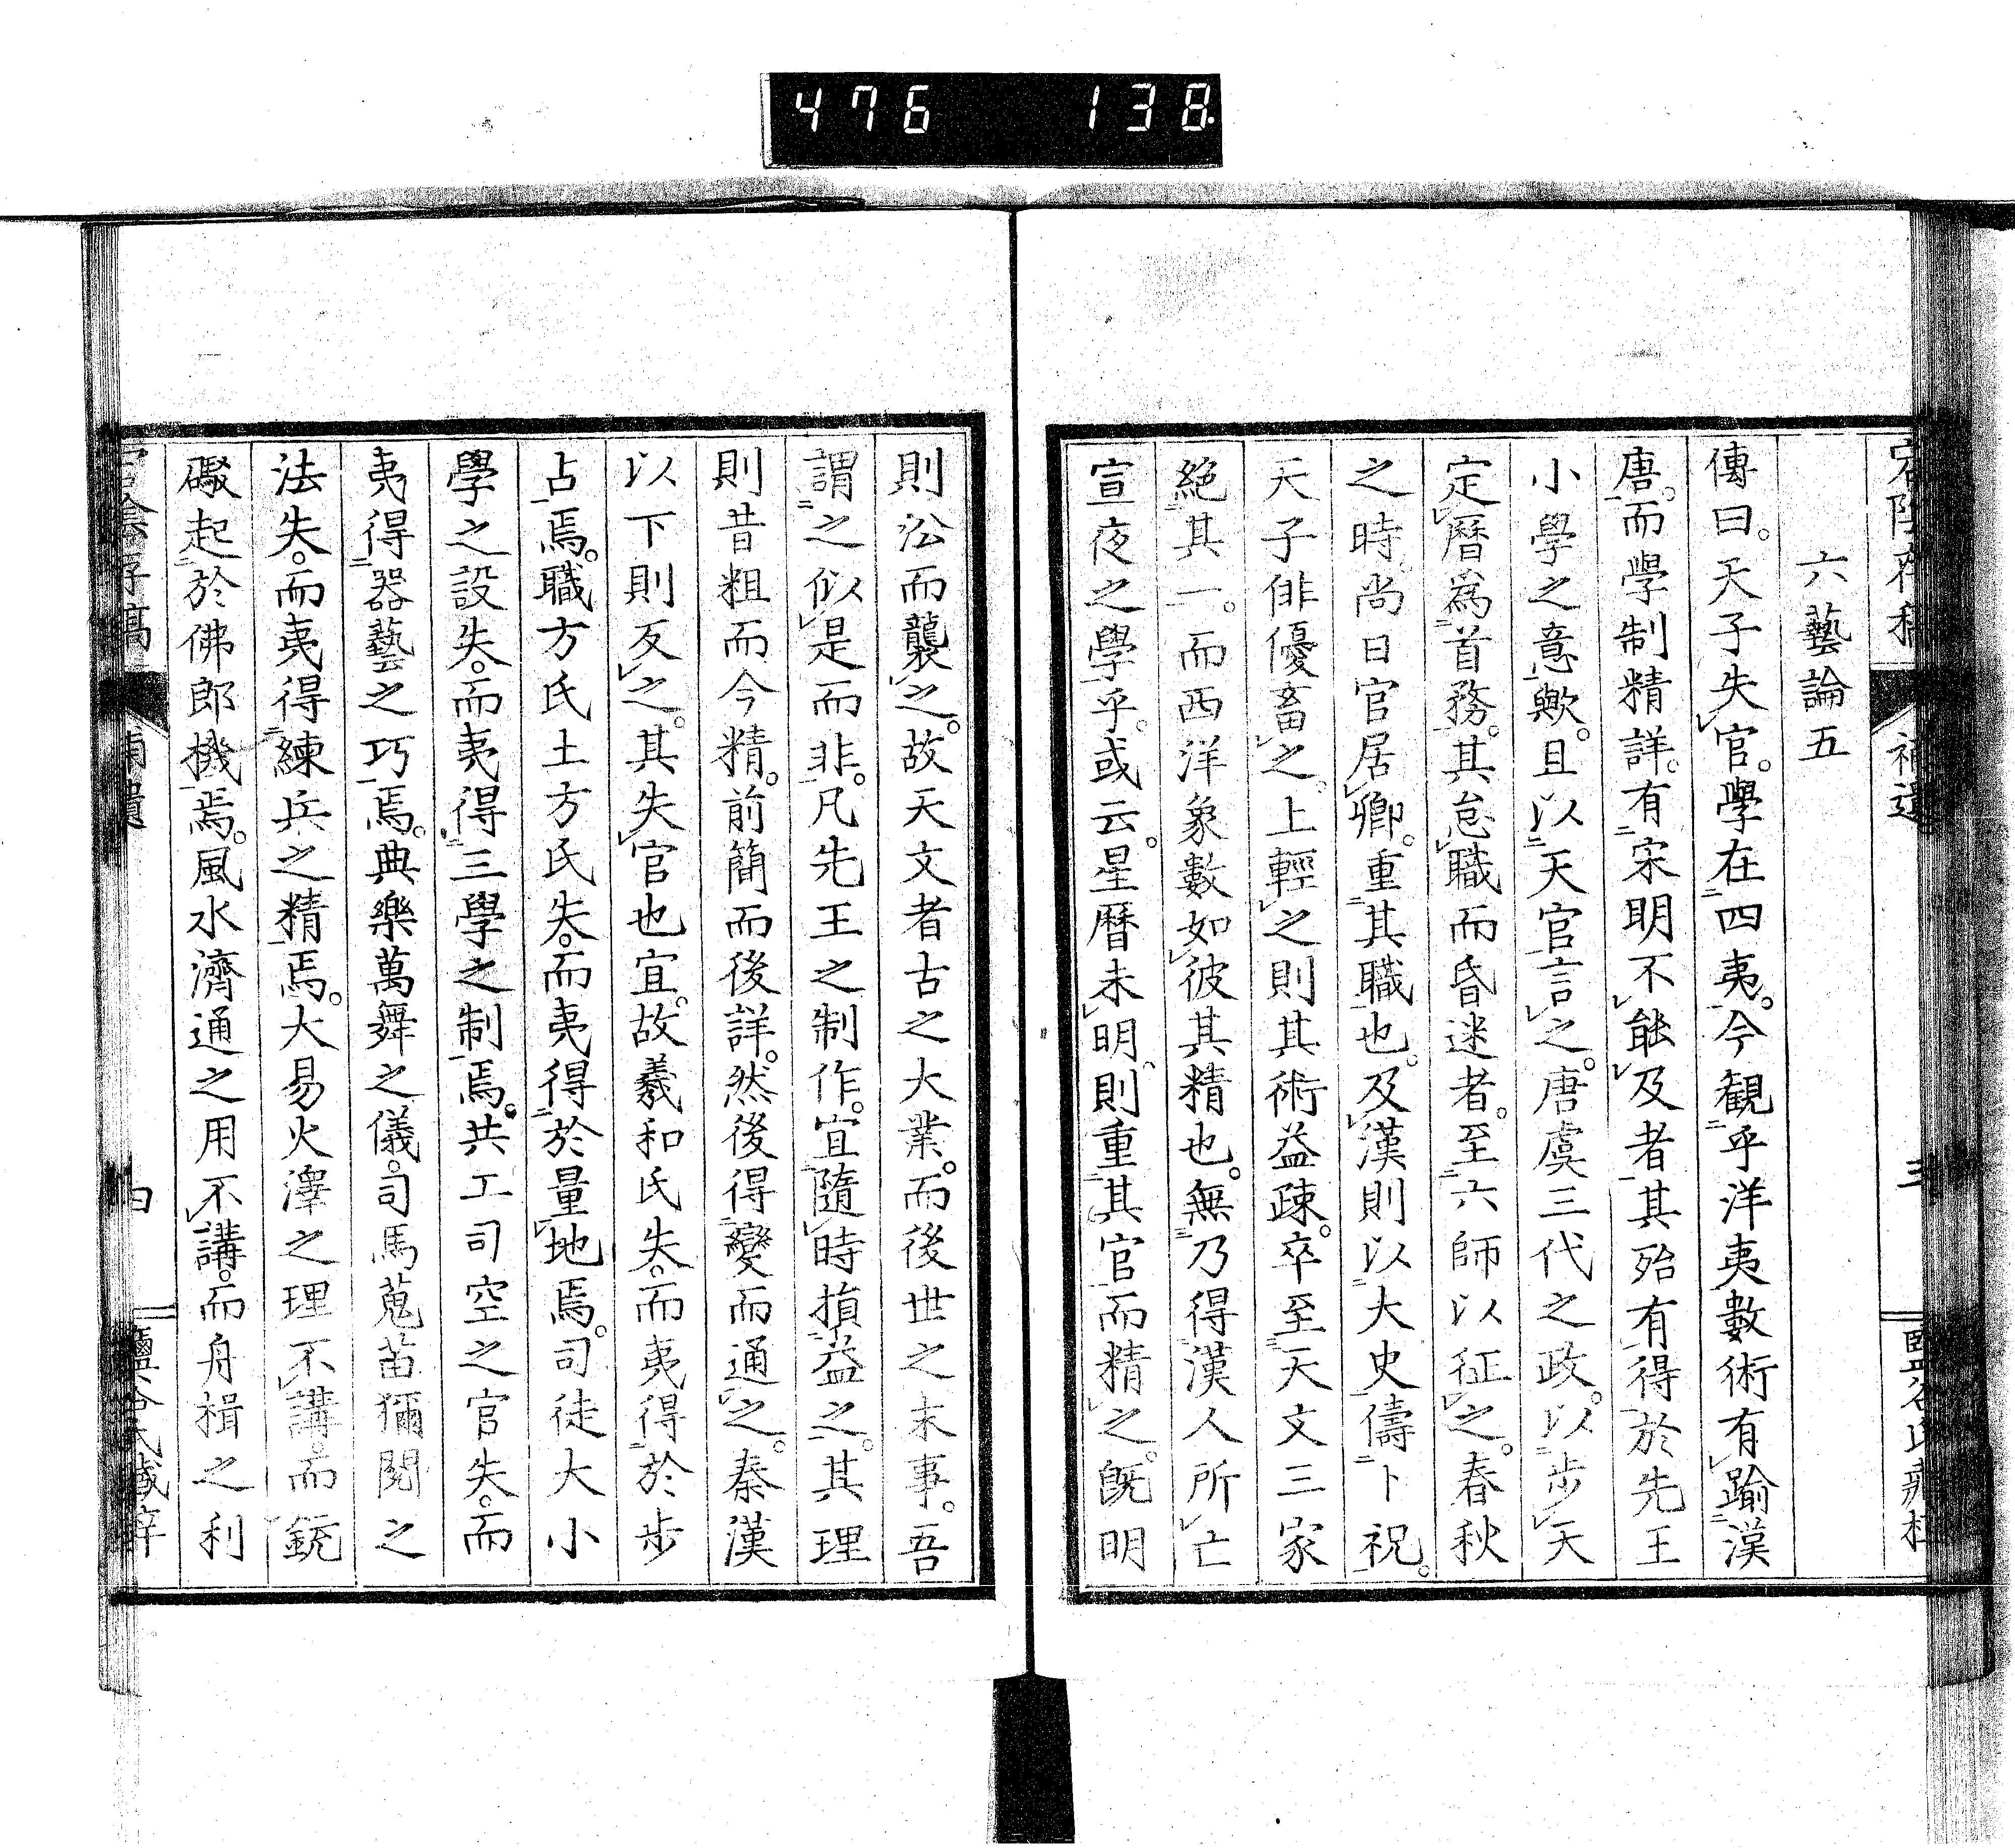 476 138
宕陰存稿 補遺 三
六藝論五
傳曰。天子失官。學在四夷。今觀乎洋夷數術有踰漢
唐。而學制精詳。有宋明不能及者。其殆有得於先王
小學之意歟。且以天官言之。唐虞三代之政。以步天
定曆爲首務。其怠職而昏迷者。至六師以征之。春秋
之時尚日官居卿。重其職也。及漢則以大史儔卜祝。
天子俳優畜之。上輕之則其術益疎。卒至天文三家
絕其一。而西洋象數如彼其精也。無乃得漢人所亡
宣夜之學乎。或云。星曆未明、則重其官而精之。既明
則㳂而襲之。故天文者古之大業。而後世之末事。吾
謂之似是而非。凡先王之制作。宜隨時損益之。其理
則昔粗而今精。前簡而後詳。然後得變而通之。秦漢
以下則反之。其失官也宜。故羲和氏失。而夷得於步
占焉。職方氏土方氏失。而夷得於量地焉。司徒大小
學之設失。而夷得三學之制焉。共工司空之官失。而
夷得器藝之巧焉。典樂萬舞之儀。司馬蒐苗獮閱之
法失。而夷得練兵之精焉。大易火澤之理不講。而銃
礮起於佛郎機焉。風水濟通之用不講。而舟楫之利
宕陰存稿 補遺 四
鹽谷氏藏梓